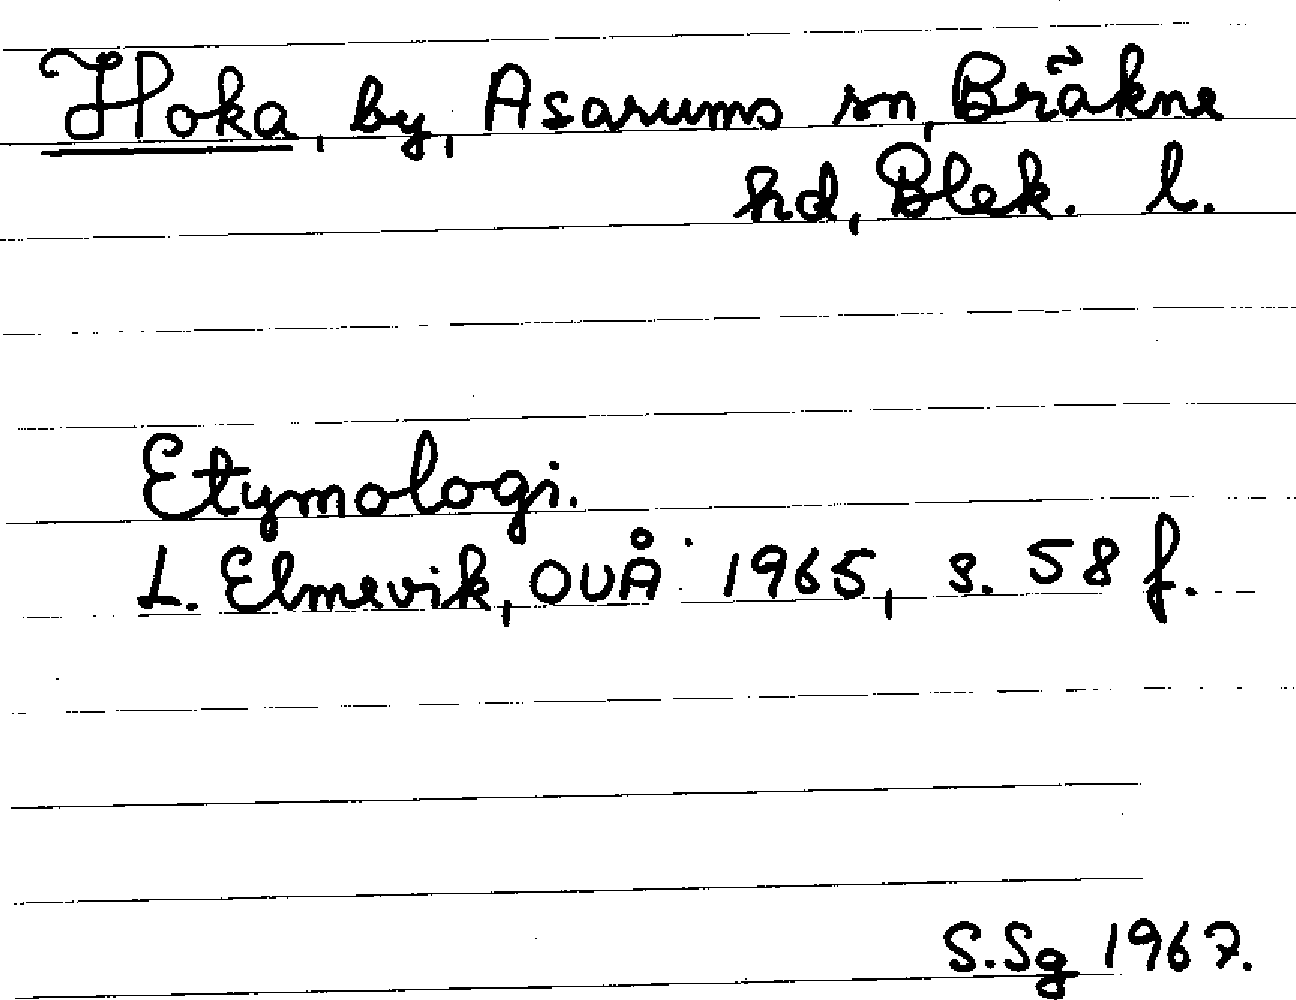 Hoka, by, Asarums sn, Bräkne
hd, Blek. l.
Etymologi.
L. Elmevik, OUÅ 1965, s. 58 f.
S.Sg 1967.